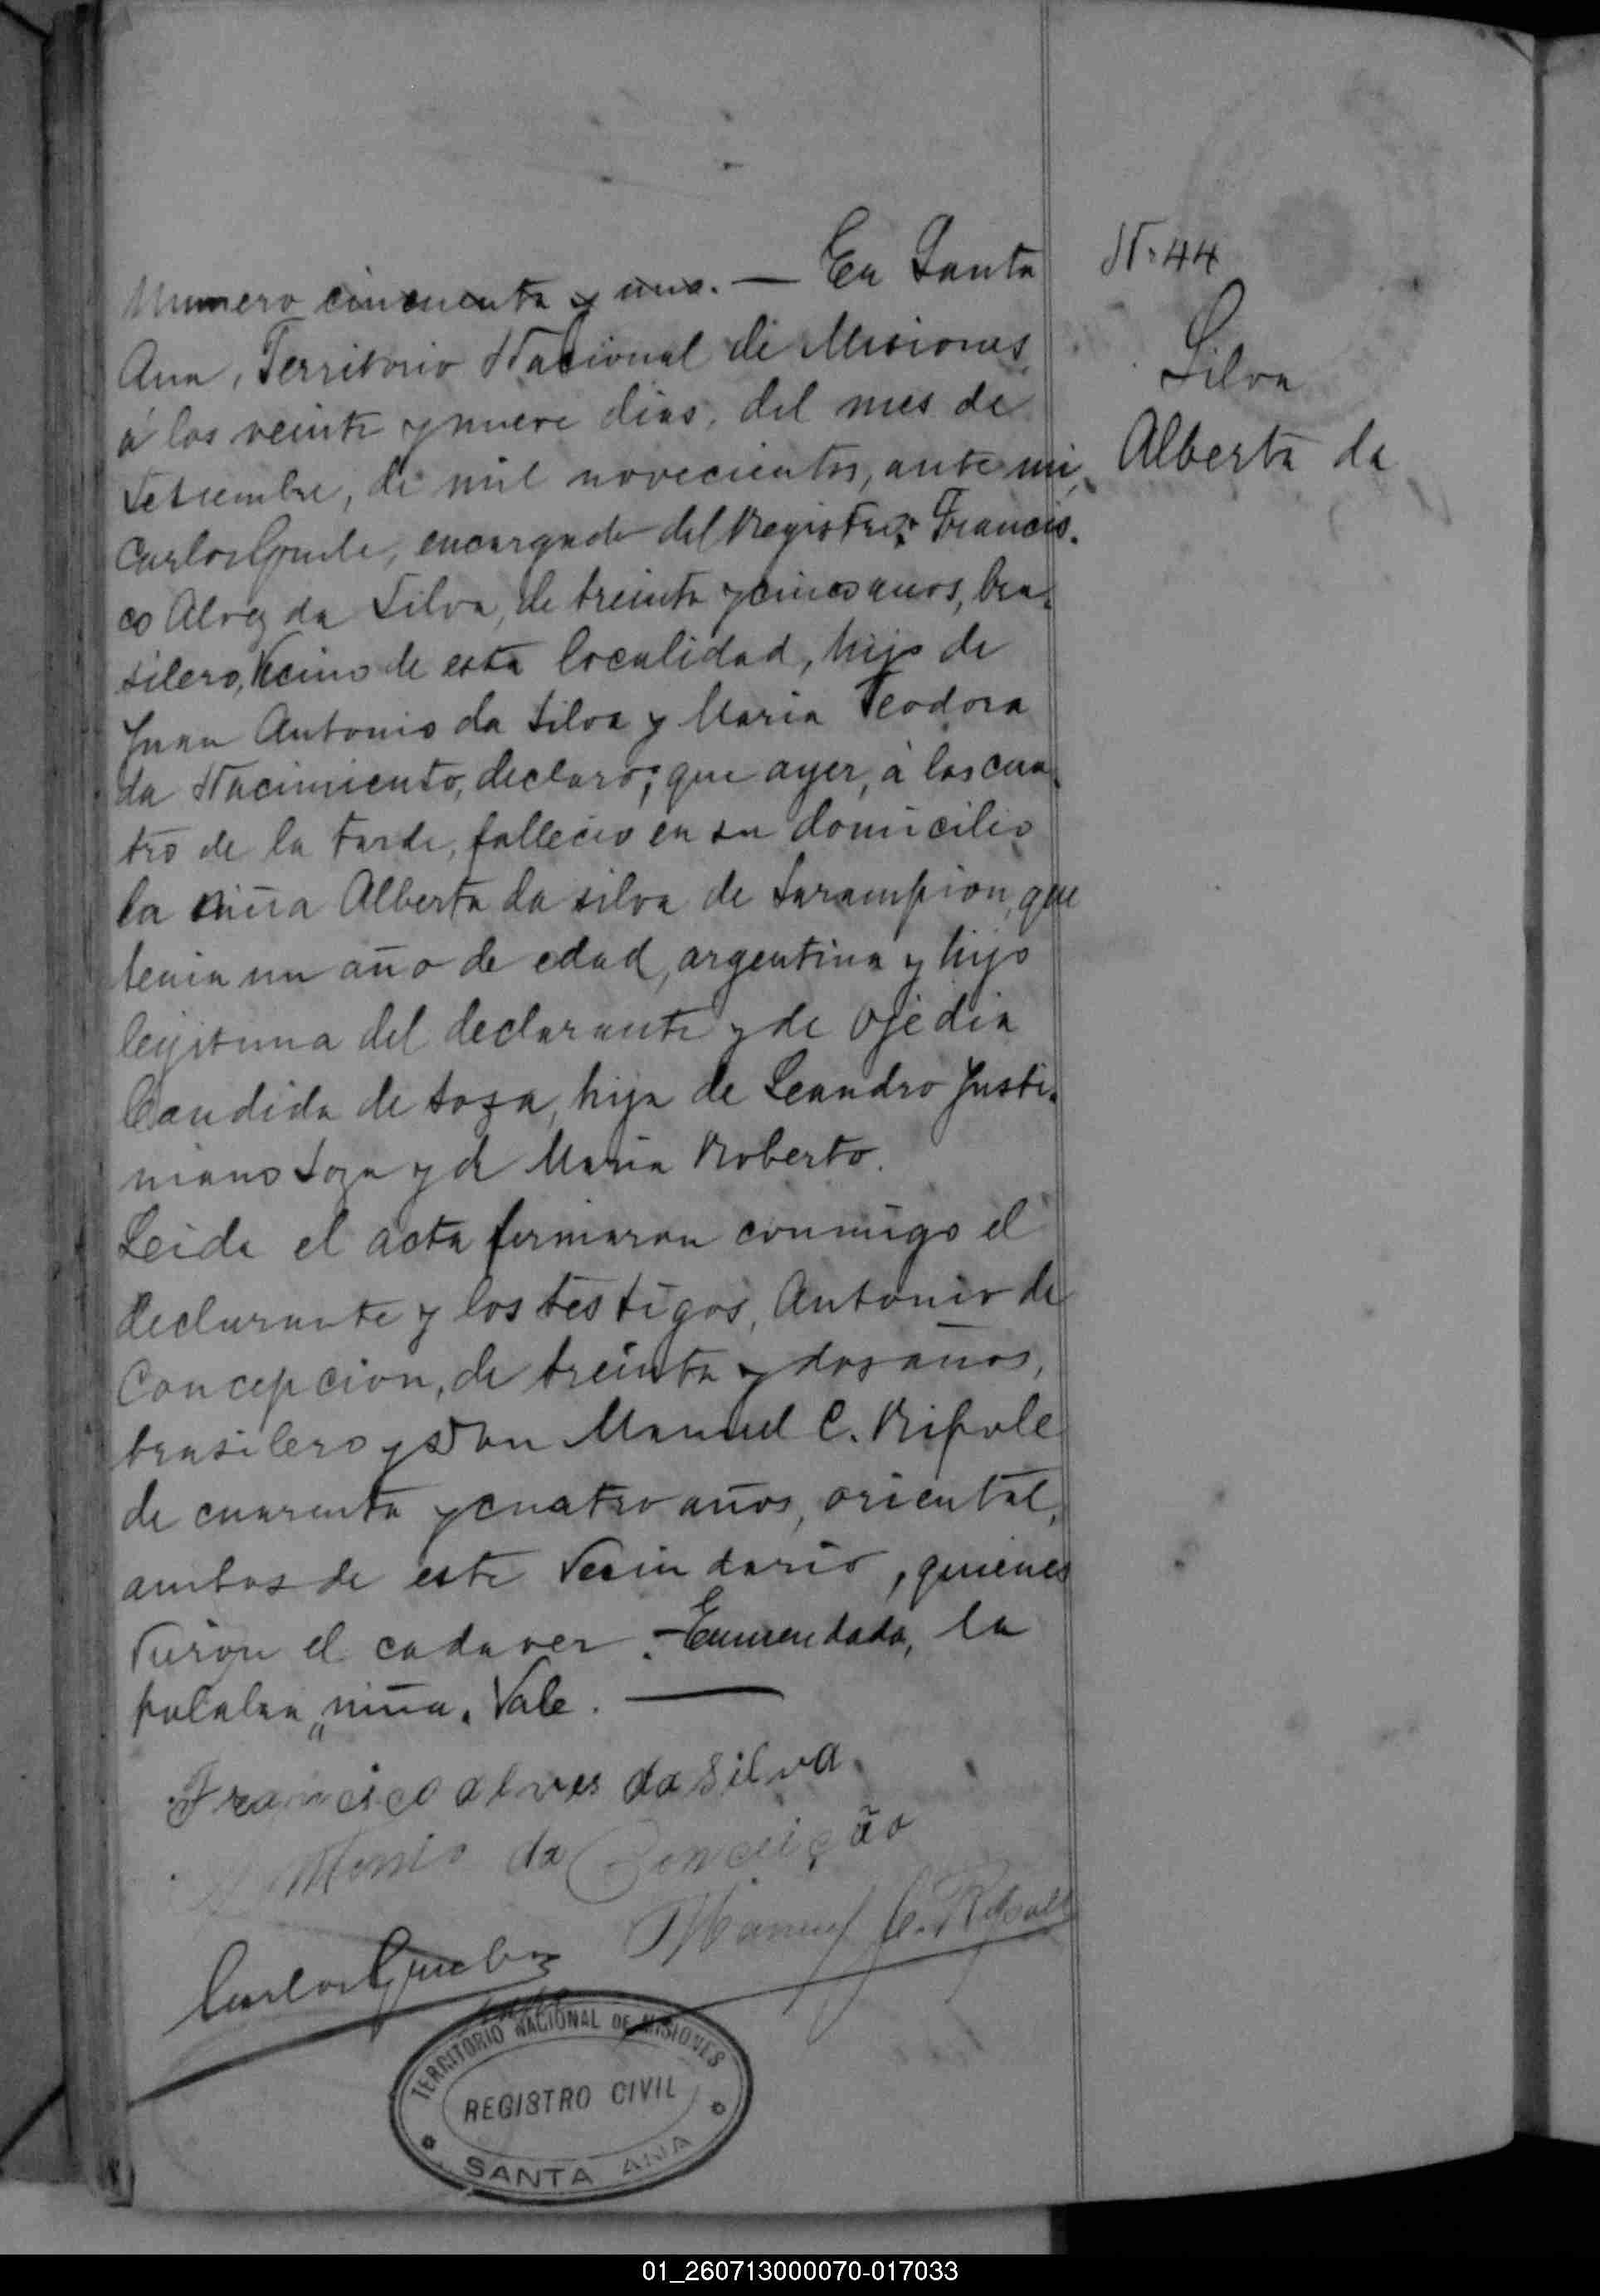 Numero cincuenta y uno. — En Santa
Ana, Territorio Nacional de Misiones
á los veinte y nueve dias, del mes de
Setiembre, de mil novecientos, ante mi,
Carlos, encargado del Registro: Francis-
co Alvez da Silva, de treinta y cinco años, bra-
silero, Vecino de esta localidad, hijo de
Juan Antonio da Silva y Maria Teodora
da Nacimiento, declaró; que ayer, á las cua-
tro de la tarde, fallecio en su domicilio
la niña Alberta da silva de Sarampion, que
tenia un año de edad, argentina y hijo
legitima del declarante y de Ojedia
Candida de Soza, hija de Leandro Justi-
niano Soza y de Maria Roberto.
Leida el acta firmaron conmigo el
declarante y los testigos, Antonio de
Concepcion, de treinta y dos años,
brasilero y Don Manuel C.
de cuarenta y cuatro años, oriental,
ambos de este Vecindario, quienes
Vieron el cadaver. - Enmendado, la
palabra „niña. Vale. —
Francisco alves da Silva.
Antonio da Conceição
Manuel C.
Carlos
TERRITORIO NACIONAL DE MISIONES
REGISTRO CIVIL
SANTA ANA
N. 44
Silva
Alberta da
01_260713000070-017033